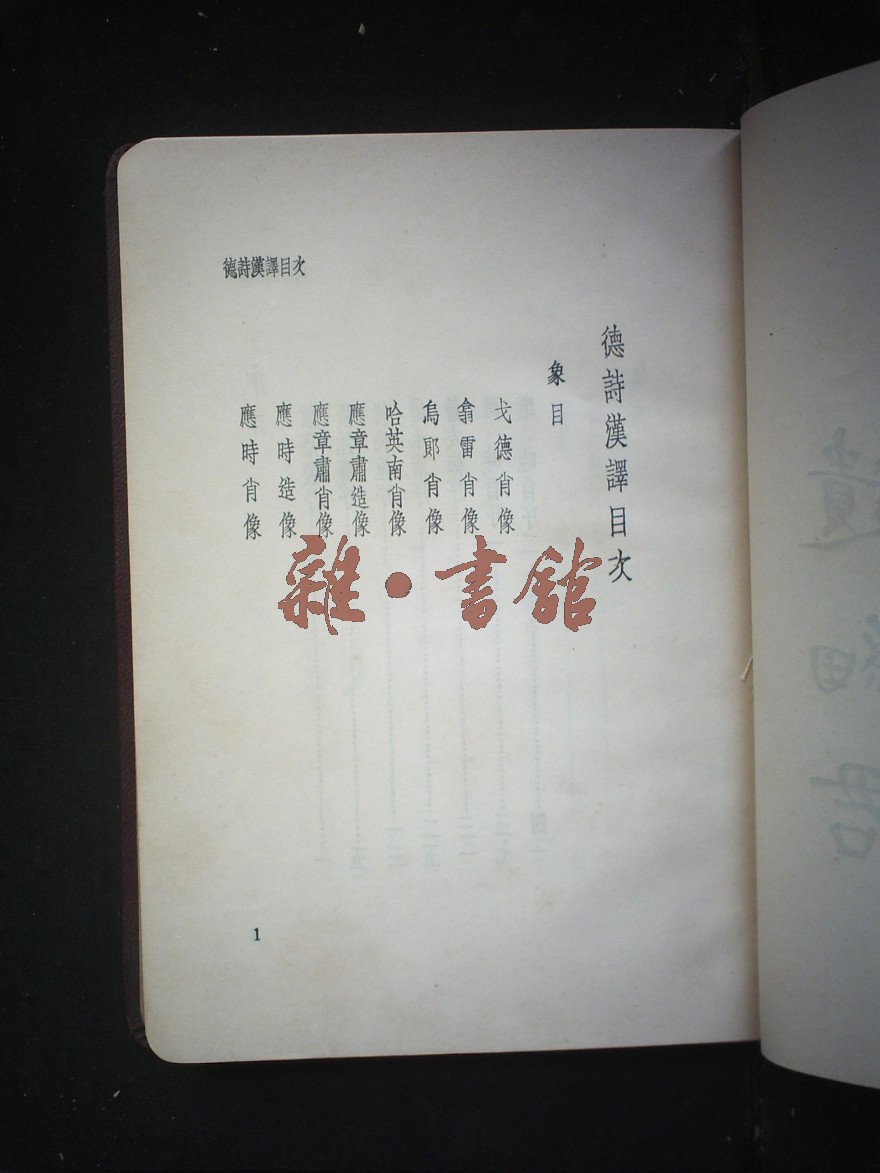 德詩漢譯目次
德詩漢譯目次
象目
戈德肖像
翕雷肖像
烏郞肖像
哈英南肖像
應章肅造像
應章肅肖像
應時造像
應時肖像
雜·書館
1
遺
細
君